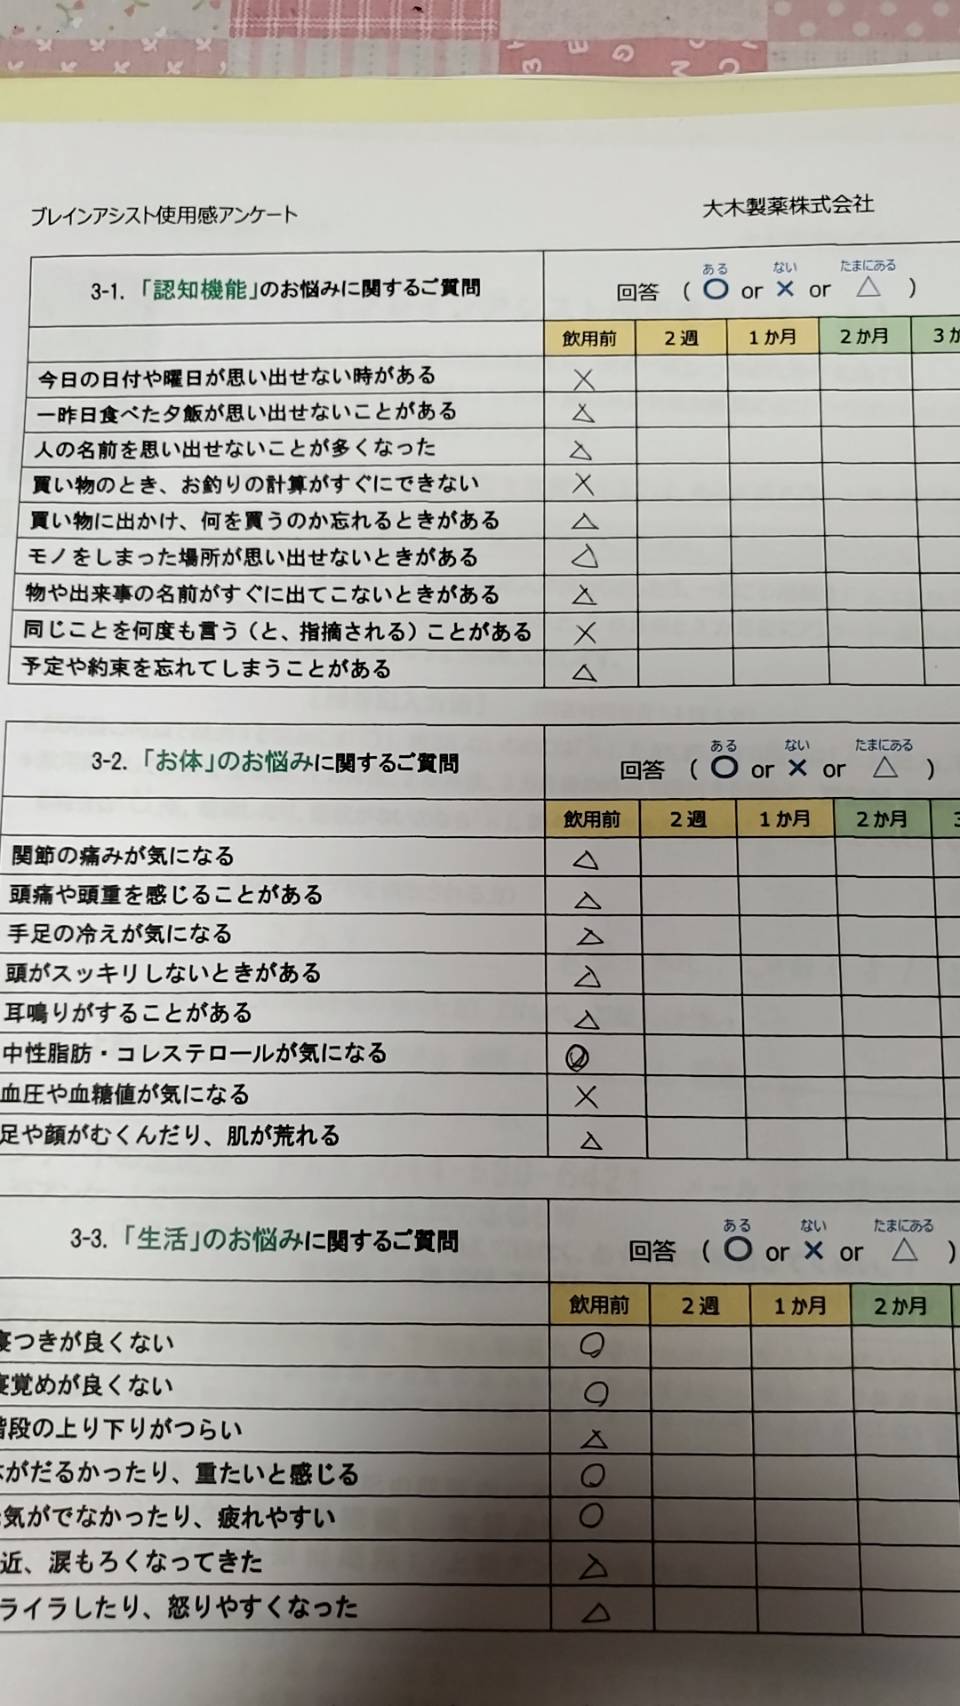 ブレインアシスト使用感アンケート
大木製薬株式会社
3-1.「認知機能」のお悩みに関するご質問
回答 ( ○ or × or △ )
ある ない たまにある
飲用前 2週 1か月 2か月 3か
今日の日付や曜日が思い出せない時がある ×
一昨日食べた夕飯が思い出せないことがある △
人の名前を思い出せないことが多くなった △
買い物のとき、お釣りの計算がすぐにできない ×
買い物に出かけ、何を買うのか忘れるときがある △
モノをしまった場所が思い出せないときがある △
物や出来事の名前がすぐに出てこないときがある △
同じことを何度も言う(と、指摘される)ことがある ×
予定や約束を忘れてしまうことがある △
3-2.「お体」のお悩みに関するご質問
回答 ( ○ or × or △ )
ある ない たまにある
飲用前 2週 1か月 2か月 3
関節の痛みが気になる △
頭痛や頭重を感じることがある △
手足の冷えが気になる △
頭がスッキリしないときがある △
耳鳴りがすることがある △
中性脂肪・コレステロールが気になる ○
血圧や血糖値が気になる ×
足や顔がむくんだり、肌が荒れる △
3-3.「生活」のお悩みに関するご質問
回答 ( ○ or × or △ )
ある ない たまにある
飲用前 2週 1か月 2か月
寝つきが良くない ○
寝覚めが良くない ○
階段の上り下りがつらい △
体がだるかったり、重たいと感じる ○
気がでなかったり、疲れやすい ○
近、涙もろくなってきた △
ライラしたり、怒りやすくなった △